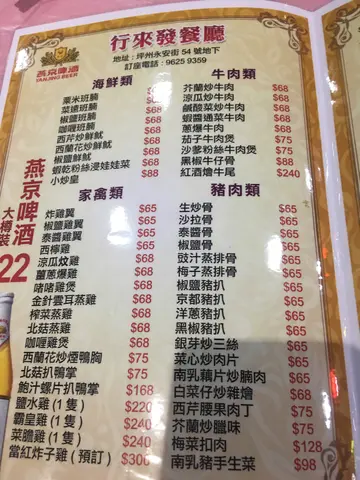 行來發餐廳
燕京啤酒
YANJING BEER
地址 : 坪州永安街 54 號地下
訂座電話 : 9625 9359
海鮮類
粟米班腩 $68
菜遠班腩
椒鹽班腩
咖喱班腩 $68
西芹炒鮮魷 $68
西蘭花炒鮮魷 $68
椒鹽鮮魷 $68
蝦乾粉絲浸娃娃菜 $68
小炒皇 $88
牛肉類
芥蘭炒牛肉 $68
涼瓜炒牛肉 $68
鹹酸菜炒牛肉 $68
蝦醬通菜牛肉 $68
蔥爆牛肉 $68
茄子牛肉煲 $75
沙爹粉絲牛肉煲 $75
黑椒牛仔骨 $88
紅酒燴牛尾 $240
家禽類
炸雞翼 $65
椒鹽雞翼 $65
泰醬雞翼 $65
西檸雞 $65
涼瓜炆雞 $68
薑蔥爆雞 $68
啫啫雞煲 $68
金針雲耳蒸雞 $68
榨菜蒸雞 $68
北菇蒸雞 $68
咖喱雞煲 $68
西蘭花炒煙鴨胸 $75
北菇扒鴨掌 $75
鮑汁螺片扒鴨掌 $168
鹽水雞 ( 1 隻 ) $220
霸皇雞 ( 1 隻 ) $240
菜膽雞 ( 1 隻 ) $240
當紅炸子雞 ( 預訂 ) $300
豬肉類
生炒骨 $65
沙拉骨 $65
泰醬骨 $65
椒鹽骨 $65
豉汁蒸排骨 $65
梅子蒸排骨 $65
椒鹽豬扒 $65
京都豬扒 $65
洋蔥豬扒 $65
黑椒豬扒 $65
銀芽炒三絲 $65
菜心炒肉片 $65
南乳藕片炒腩肉 $65
白菜仔炒雜燴 $68
西芹腰果肉丁 $65
芥蘭炒臘味 $75
梅菜扣肉 $128
南乳豬手生菜 $98
燕京啤酒
大樽裝
22